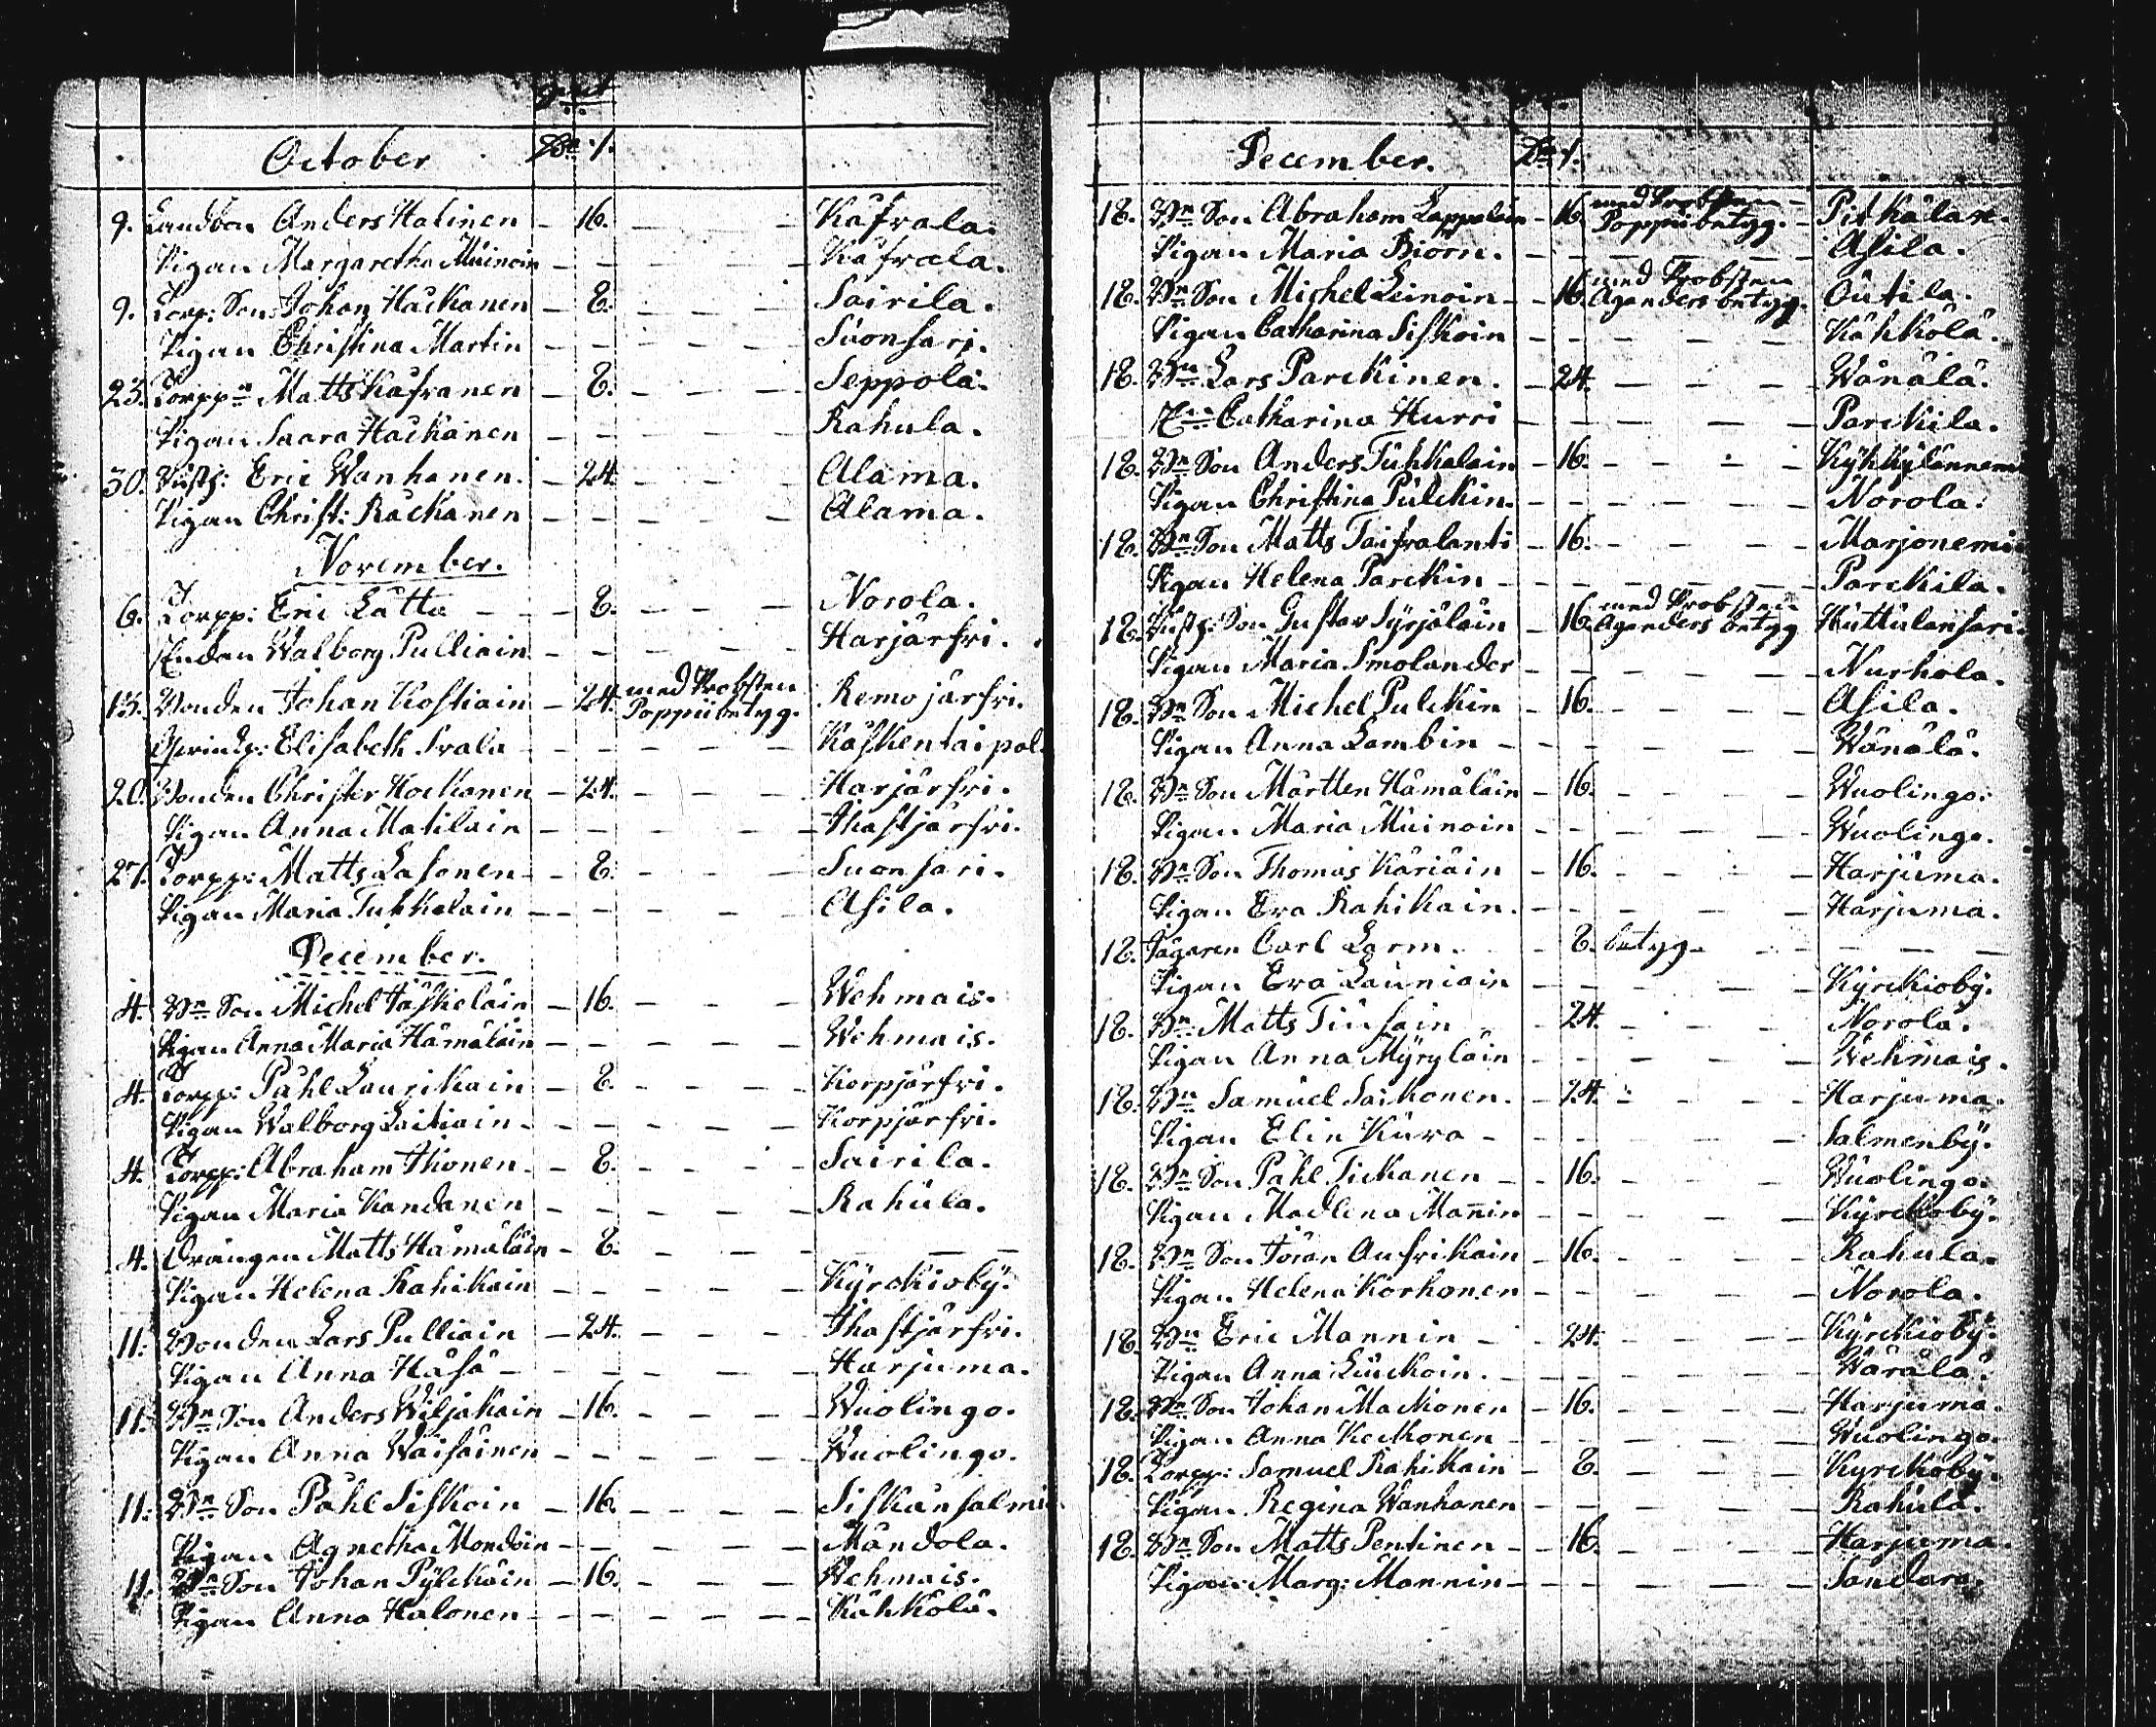 October
9. Landbon Anders Halinen – 16. – – Kåfrala.
Pigan Margaretha Muinoin – – – – Kåfrala.
9. Torp: Son: Johan Häckanen – 8. – – – Sairila.
Pigan Christina Martin – – – – – Suonsari.
23. Torppn Matts Kåfranen – 8. – – – Seppola.
Pigan Saara Häckänen – – – – – Rahula.
30. Inhys: Eric Wanhanen. – 24 – – – Alama.
Pigan Christ: Räckänen – – – – – Alama.
November.
6. Torpp: Eric Lättö – – – 8. – – – Norola.
Enckan Walborg Pulliain – – – – – Harjärfvi.
13. Bonden Johan Kostiain – 24. med Probsten Poppii betyg. Remojärfvi.
Elisabeth Irala – – – – – Kaskentaipal
20. Bonden Christer Hockanen – 24. – – – Harjärfvi.
Pigan Anna Matilain – – – – – Ihastjärfvi.
27. Torpp: Matts Lasonen – – 8. – – – Suonsari.
Pigan Maria Tuhkalain – – – – – Asila.
December.
4. Bn Son Michel Häskeläin – 16. – – – Wehmais.
Pigan Anna Maria Hämäläin – – – – – Wehmais.
4. Torpp: Påhl Laurikain – 8. – – – Korpjärfvi.
Pigan Walborg Laitiain – – – – – Korpjärfvi.
4. Torpp: Abraham Ihonen – – 8. – – – Sairila.
Pigan Maria Kandanen – – – – – Rahula.
4. Drängen Matts Hämäläin – 8. – – – – – –
Pigan Helena Rahikain – – – – – Kyrckioby.
11: Bonden Lars Pulliain – 24. – – – Ihastjärfvi.
Pigan Anna Häsä – – – – – – Harjuma.
11: Bn Son Anders Wiljakain – 16. – – – Wuolingo.
Pigan Anna Waisäinen – – – – – Wuolingo.
11: Bn Son Påhl Siskoin – 16. – – – – Siskänsalmi
Pigan Agnetha Mondoin – – – – – Mandola.
11. Bn Son Johan Pylckäin – 16. – – – Wehmais.
Pigan Anna Halonen – – – – – – Kähkölä.
December.
18. Bn Son Abraham Lappalain – 16. med Probsten Poppii betyg. – Pitkälax.
Pigan Maria Biörn. – – – – – Asila.
18. Bn Son Michel Leinoin – – 16. med Probsten Aganders betyg. Outila.
Pigan Catharina Siskoin – – – – – Kähkölä.
18. Bn Lars Parckinen. – 24. – – – Wänälä.
Catharina Hurri – – – – – Parckila.
18. Bn Son Anders Tuhkalain – 16. – – – Kyhkylänniemi
Pigan Christina Pulckin. – – – – – Norola.
18. Bn Son Matts Taifvalanti – 16. – – – Marjonemi
Pigan Helena Parckin – – – – – Parckila.
18. Inhys: Son Gustav Syrjäläin – 16. med Probsten Aganders betyg Huttulansari.
Pigan Maria Smolander – – – – – Nurhola.
18. Bn Son Michel Pulckin – 16. – – – Asila.
Pigan Anna Lambin – – – – – Wänälä.
18. Bn Son Mårtten Hämäläin – 16. – – – Wuolingo.
Pigan Maria Muinoin – – – – – Wuolingo.
18. Bn Son Thomas Käriäin – 16. – – – Harjuma.
Pigan Eva Rahikain. – – – – – Harjuma.
18. Jägaren Carl Lorm. – 8. betyg – – – –
Pigan Eva Launiain – – – – – Kyrckioby.
18. Bn: Matts Tiusain – 24. – – – Norola.
Pigan Anna Myryläin – – – – – Wehmais.
18. Bn Samuel Saikonen. – 24. – – – Harjuma.
Pigan Elin Kura – – – – – Salmenby.
18. Bn Son Påhl Tickanen – – 16. – – – Wuolingo.
Pigan Madlena Mannin – – – – – Kyrckioby.
18. Bn Son Jöran Aufrikain – 16. – – – Rahula.
Pigan Helena Korhonen – – – – – Norola.
18. Bn Eric Mannin – 24. – – – Kyrckioby.
Pigan Anna Liuckoin. – – – – – Wäräla.
18. Bn Son Johan Mackonen – 16. – – – Harjuma.
Pigan Anna Keckonen – – – – – Wuolingo.
18. Torpp: Samuel Rahikain – 8. – – – Kyrckioby.
Pigan Regina Wanhanen – – – – – Rahula.
18. Bn Son Matts Pentinen – – 16. – – – Harjuma.
Pigan: Marg: Mannin – – – – – Sandara.